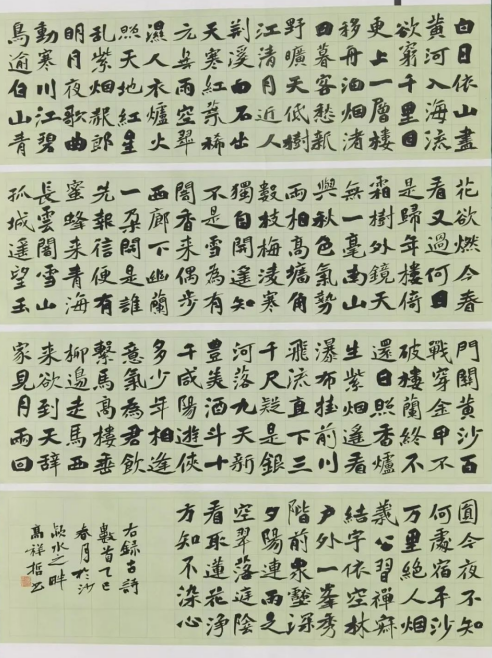 白日依山盡
黄河入海流
欲窮千里目
更上一層樓
移舟泊烟渚
日暮客愁新
野曠天低樹
江清月近人
荆溪白石出
天寒红葉稀
元無雨空翠
濕人衣爐火
照天地红星
乱紫烟赧郎
明月夜歌曲
動寒川江碧
鳥逾白山青
花欲燃今春
看又過何日
是歸年樓倚
霜樹外鏡天
無一毫南山
與秋色氣勢
兩相高墙角
數枝梅凌寒
獨自開遥知
不是雪為有
闇香来偶步
西廊下幽蘭
一朶開是誰
先報信便有
蜜蜂来青海
長雲闇雪山
孤城遥望玉
門關黄沙百
戰穿金甲不
破樓蘭終不
還日照香爐
生紫烟遥看
瀑布挂前川
飛流直下三
千尺疑是銀
河落九天新
豐美酒斗十
千咸陽遊俠
多少年相逢
意氣為君飲
繫馬高樓垂
柳邊走馬西
来欲到天辭
家見月兩回
圓今夜不知
何處宿平沙
万里絶人烟
義公習禪寂
結宇依空林
户外一峯秀
階前衆壑深
夕陽連雨足
空翠落庭陰
看取蓮花淨
方知不染心
右録古詩
數首乙巳
春月於沙
潁水之畔
高祥哲书